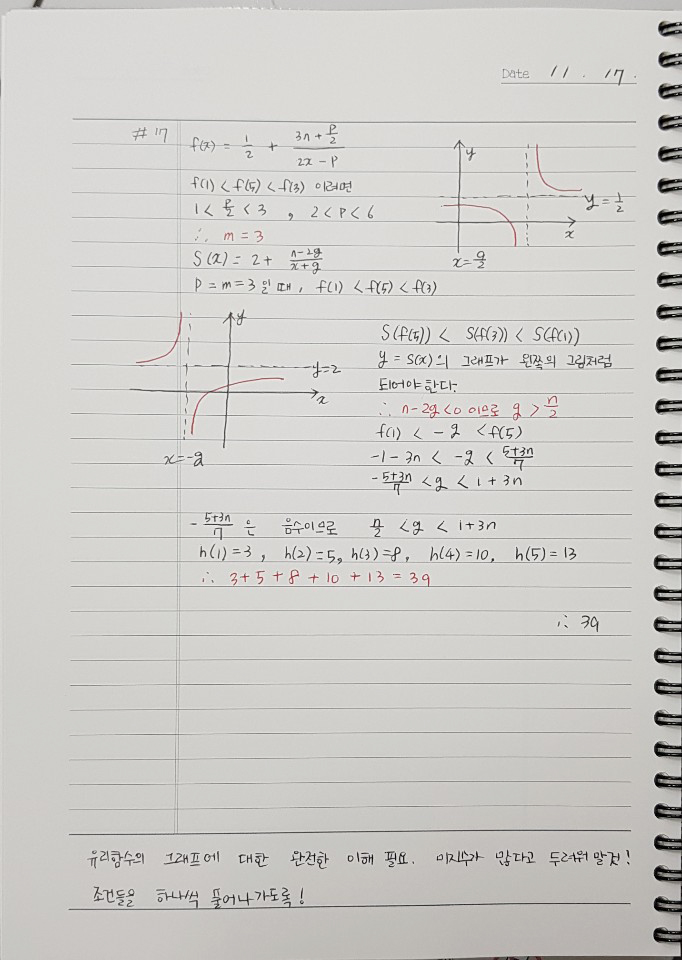 Date 11. 17.
#17
f(x) = 1/2 + (3n + p/2)/(2x - p)
f(1) < f(5) < f(3) 이려면
1 < p/2 < 3 , 2 < p < 6
∴ m = 3
S(x) = 2 + (n-2g)/(x+g)
P = m = 3 일 때, f(1) < f(5) < f(3)
y
y = 1/2
x
x = a/2
y
y=2
x
x=-g
S(f(5)) < S(f(3)) < S(f(1))
y = S(x)의 그래프가 왼쪽의 그림처럼
되어야한다.
∴ n-2g<0 이므로 g > n/2
f(1) < -g < f(5)
-1-3n < -g < (5+3n)/7
-(5+3n)/7 < g < 1+3n
-(5+3n)/7 은 음수이므로 n/2 < g < 1+3n
h(1)=3, h(2)=5, h(3)=8, h(4)=10, h(5)=13
∴ 3+5+8+10+13 = 39
∴ 39
유리함수의 그래프에 대한 완전한 이해 필요. 미지수가 많다고 두려워말것!
조건들을 하나씩 풀어나가도록!